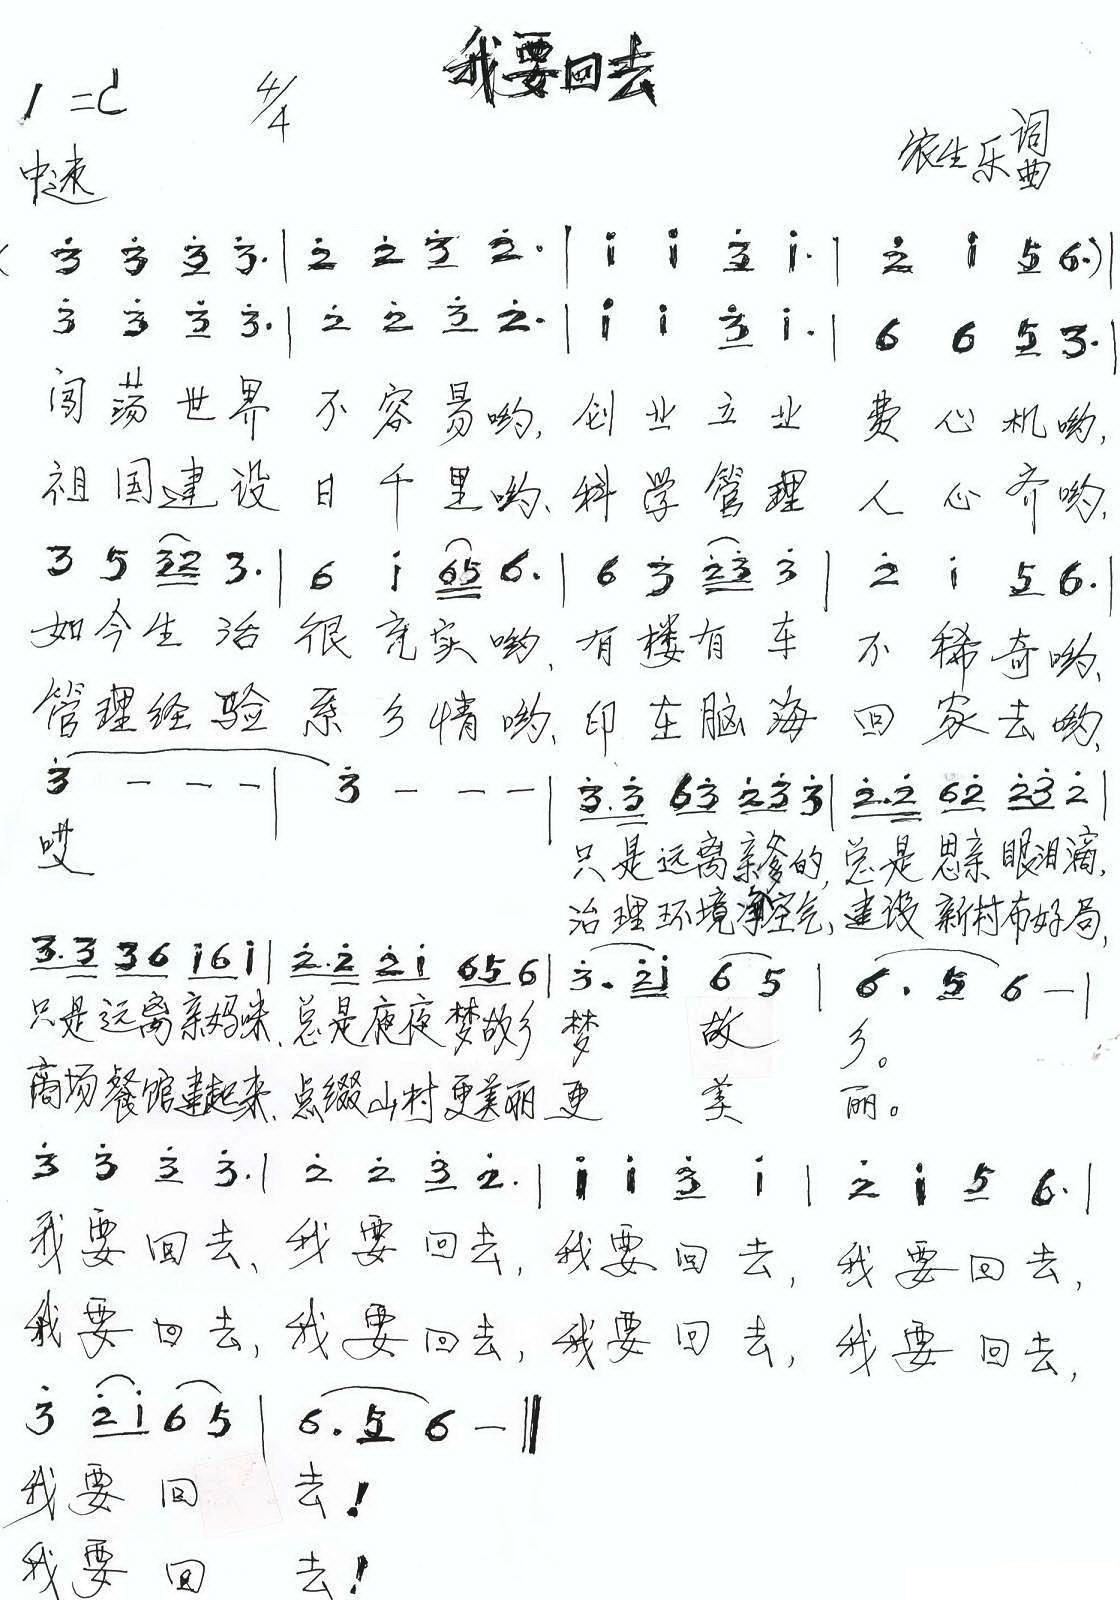 我要回去
1=C 4/4
中速
农生乐 词曲
(3̇ 3̇ 3̇ 3̇. | 2̇ 2̇ 3̇ 2̇. | 1̇ 1̇ 3̇ 1̇. | 2̇ 1̇ 5 6.) |
3̇ 3̇ 3̇ 3̇. | 2̇ 2̇ 3̇ 2̇. | 1̇ 1̇ 3̇ 1̇. | 6 6 5 3. |
闯荡世界 不容易哟, 创业立业 费心机哟,
祖国建设 日千里哟、科学管理 人心齐哟,
3 5 32 3. | 6 1̇ 65 6. | 6 3̇ 2̇3̇ 3̇ | 2̇ 1̇ 5 6. |
如今生活 很充实哟, 有楼有车 不稀奇哟、
管理经验 系乡情哟、印在脑海 回家去哟,
3̇ — — — | 3̇ — — — | 3̇.3̇ 63̇ 2̇3̇3̇ | 2̇.2̇ 62̇ 2̇3̇2̇ |
哎 只是远离亲爹的, 总是思亲眼泪滴,
治理环境净空气, 建设新村布好局,
3.3 36 1̇61̇ | 2̇.2̇ 2̇1̇ 656 | 3̇. 2̇1̇ 65 | 6. 5 6 — |
只是远离亲妈咪、总是夜夜梦故乡 梦 故 乡。
商场餐馆建起来、点缀山村更美丽 更 美 丽。
3̇ 3̇ 3̇ 3̇. | 2̇ 2̇ 3̇ 2̇. | 1̇ 1̇ 3̇ 1̇ | 2̇ 1̇ 5 6. |
我要回去、我要回去, 我要回去, 我要回去,
我要回去, 我要回去, 我要回去, 我要回去,
3̇ 2̇1̇ 65 | 6. 5 6 — ‖
我要回 去!
我要回 去!